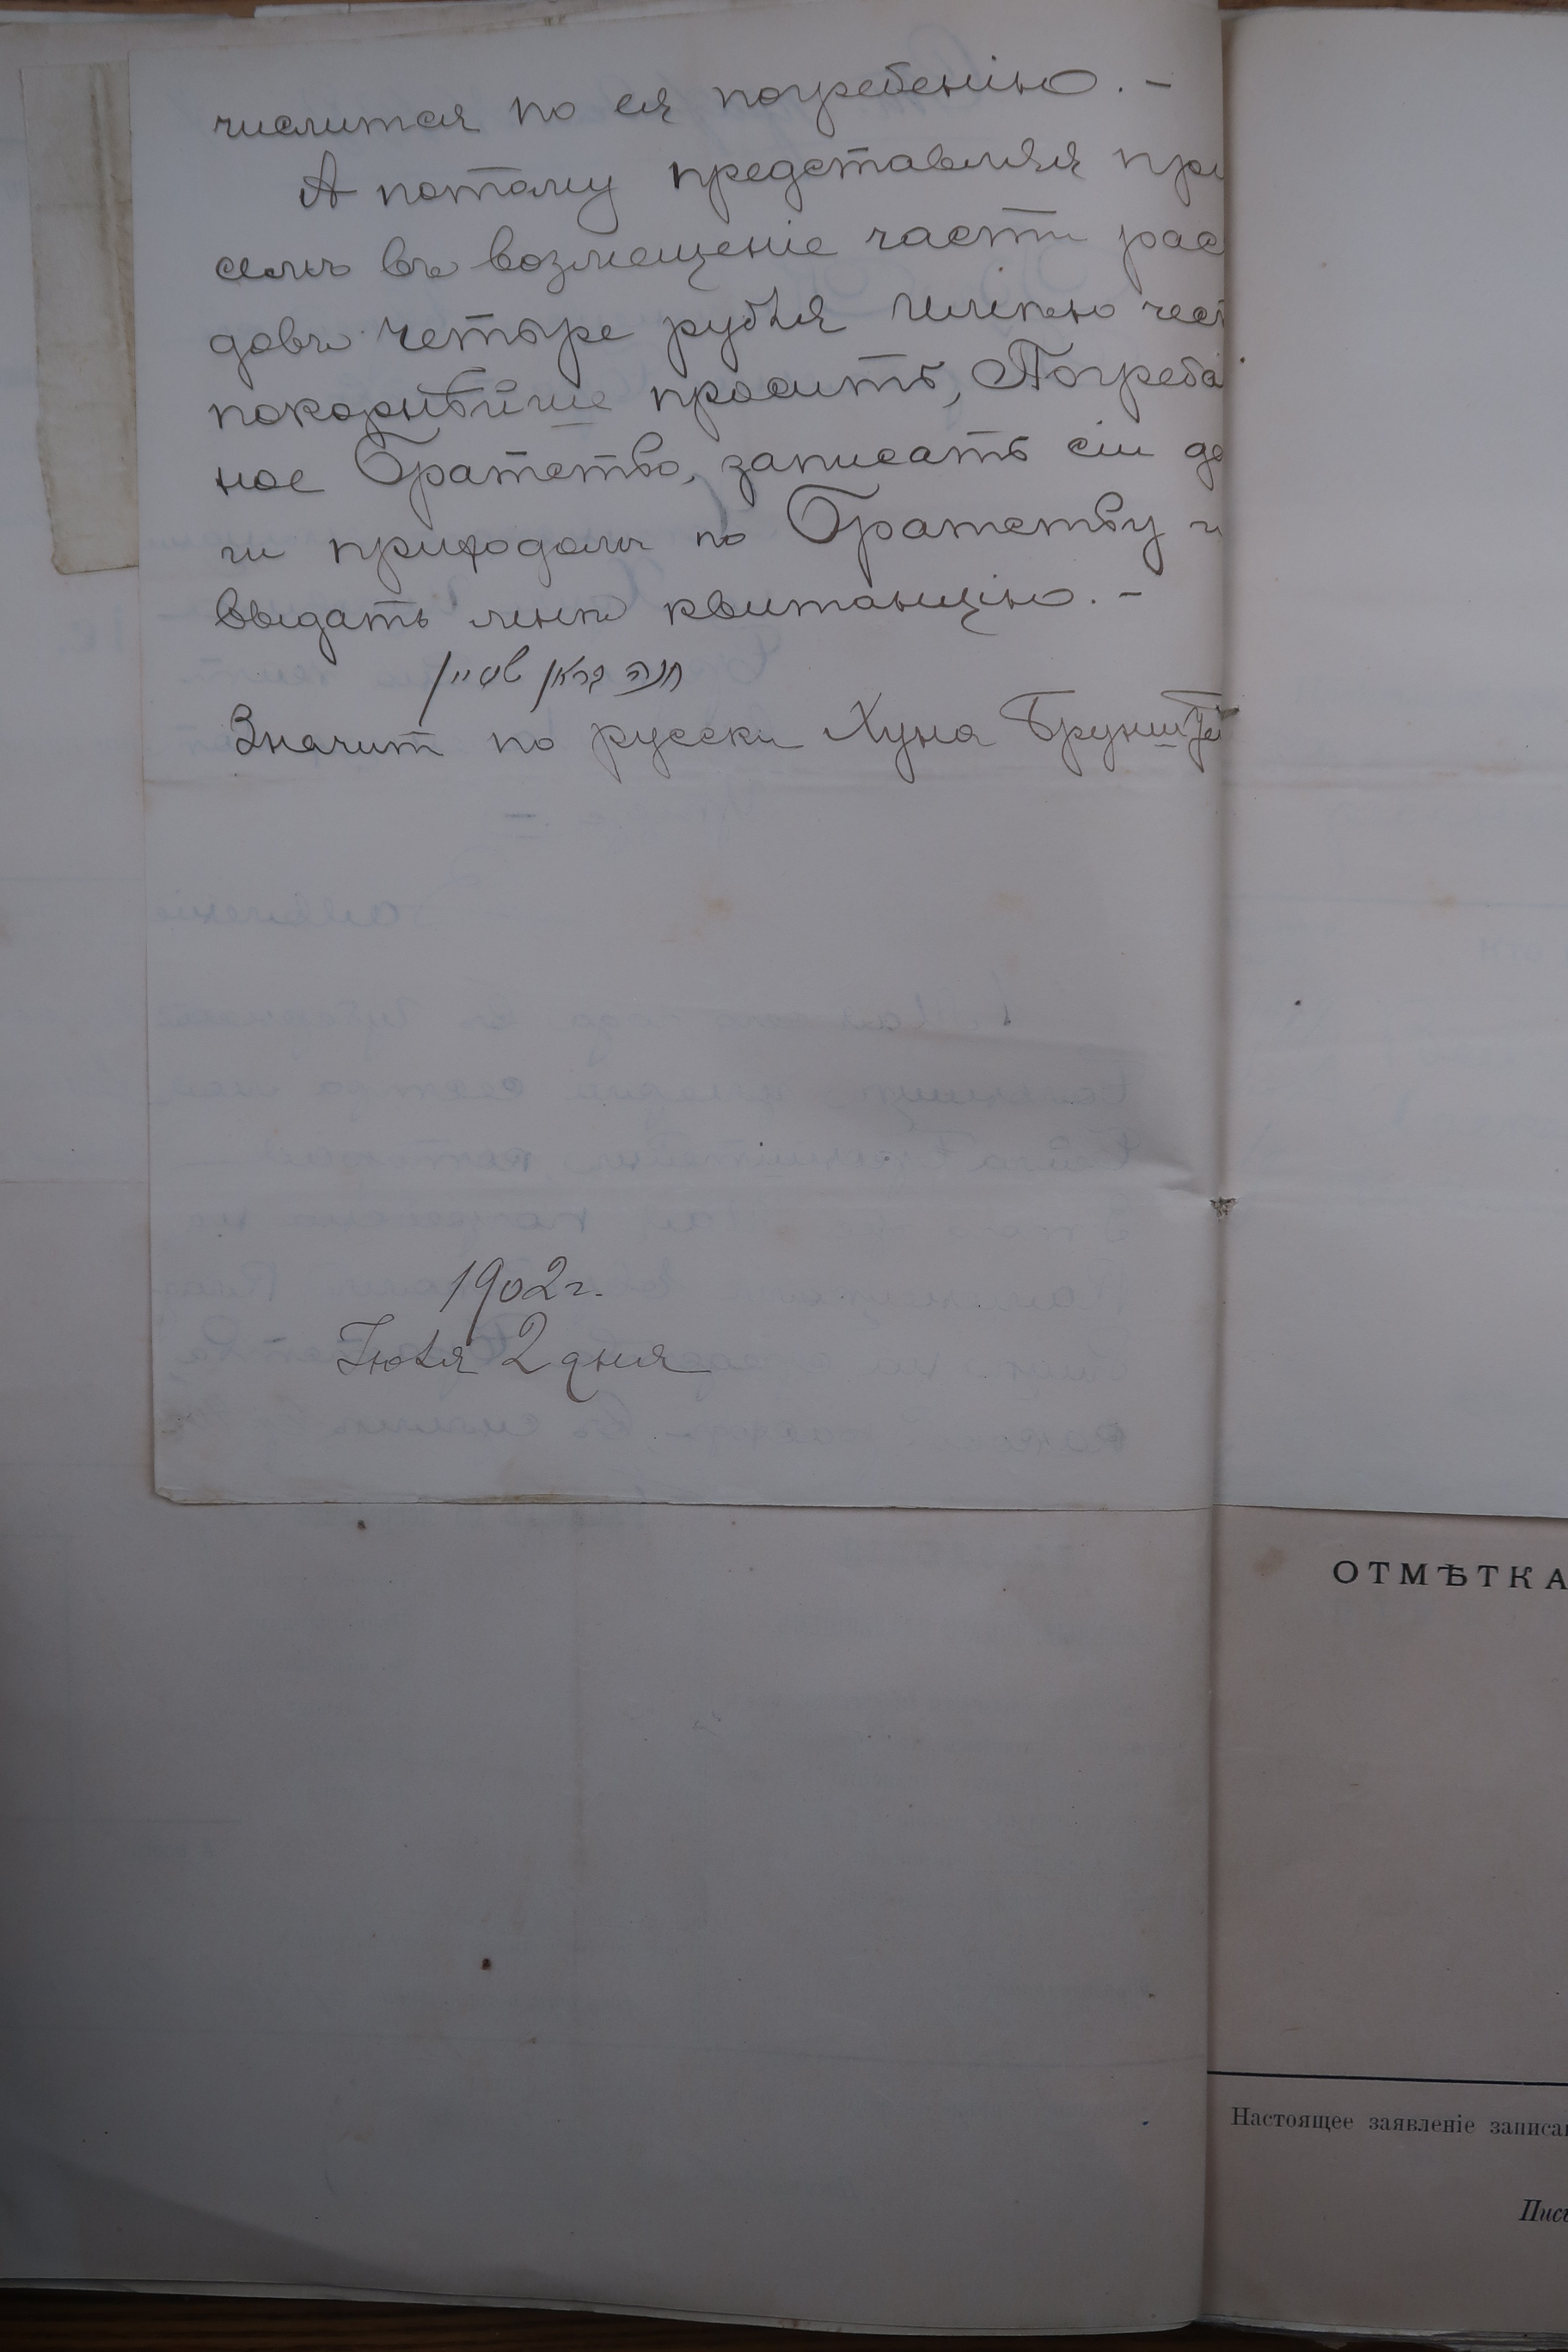 числится по ея погребенію. –
А потому представляя при
семъ въ возмещеніе части рас
довъ четыре рубля имѣю чест
покорнѣйше просить, Погреба
ное Братство, записать сіи де
ги приходомъ по Братству и
выдать мнѣ квитанцію. –
חנה בראן שטיין
Значит по русски Хуна Брунштей
1902 г.
Іюля 2 дня
ОТМѢТКА
Настоящее заявленіе записан
Пись